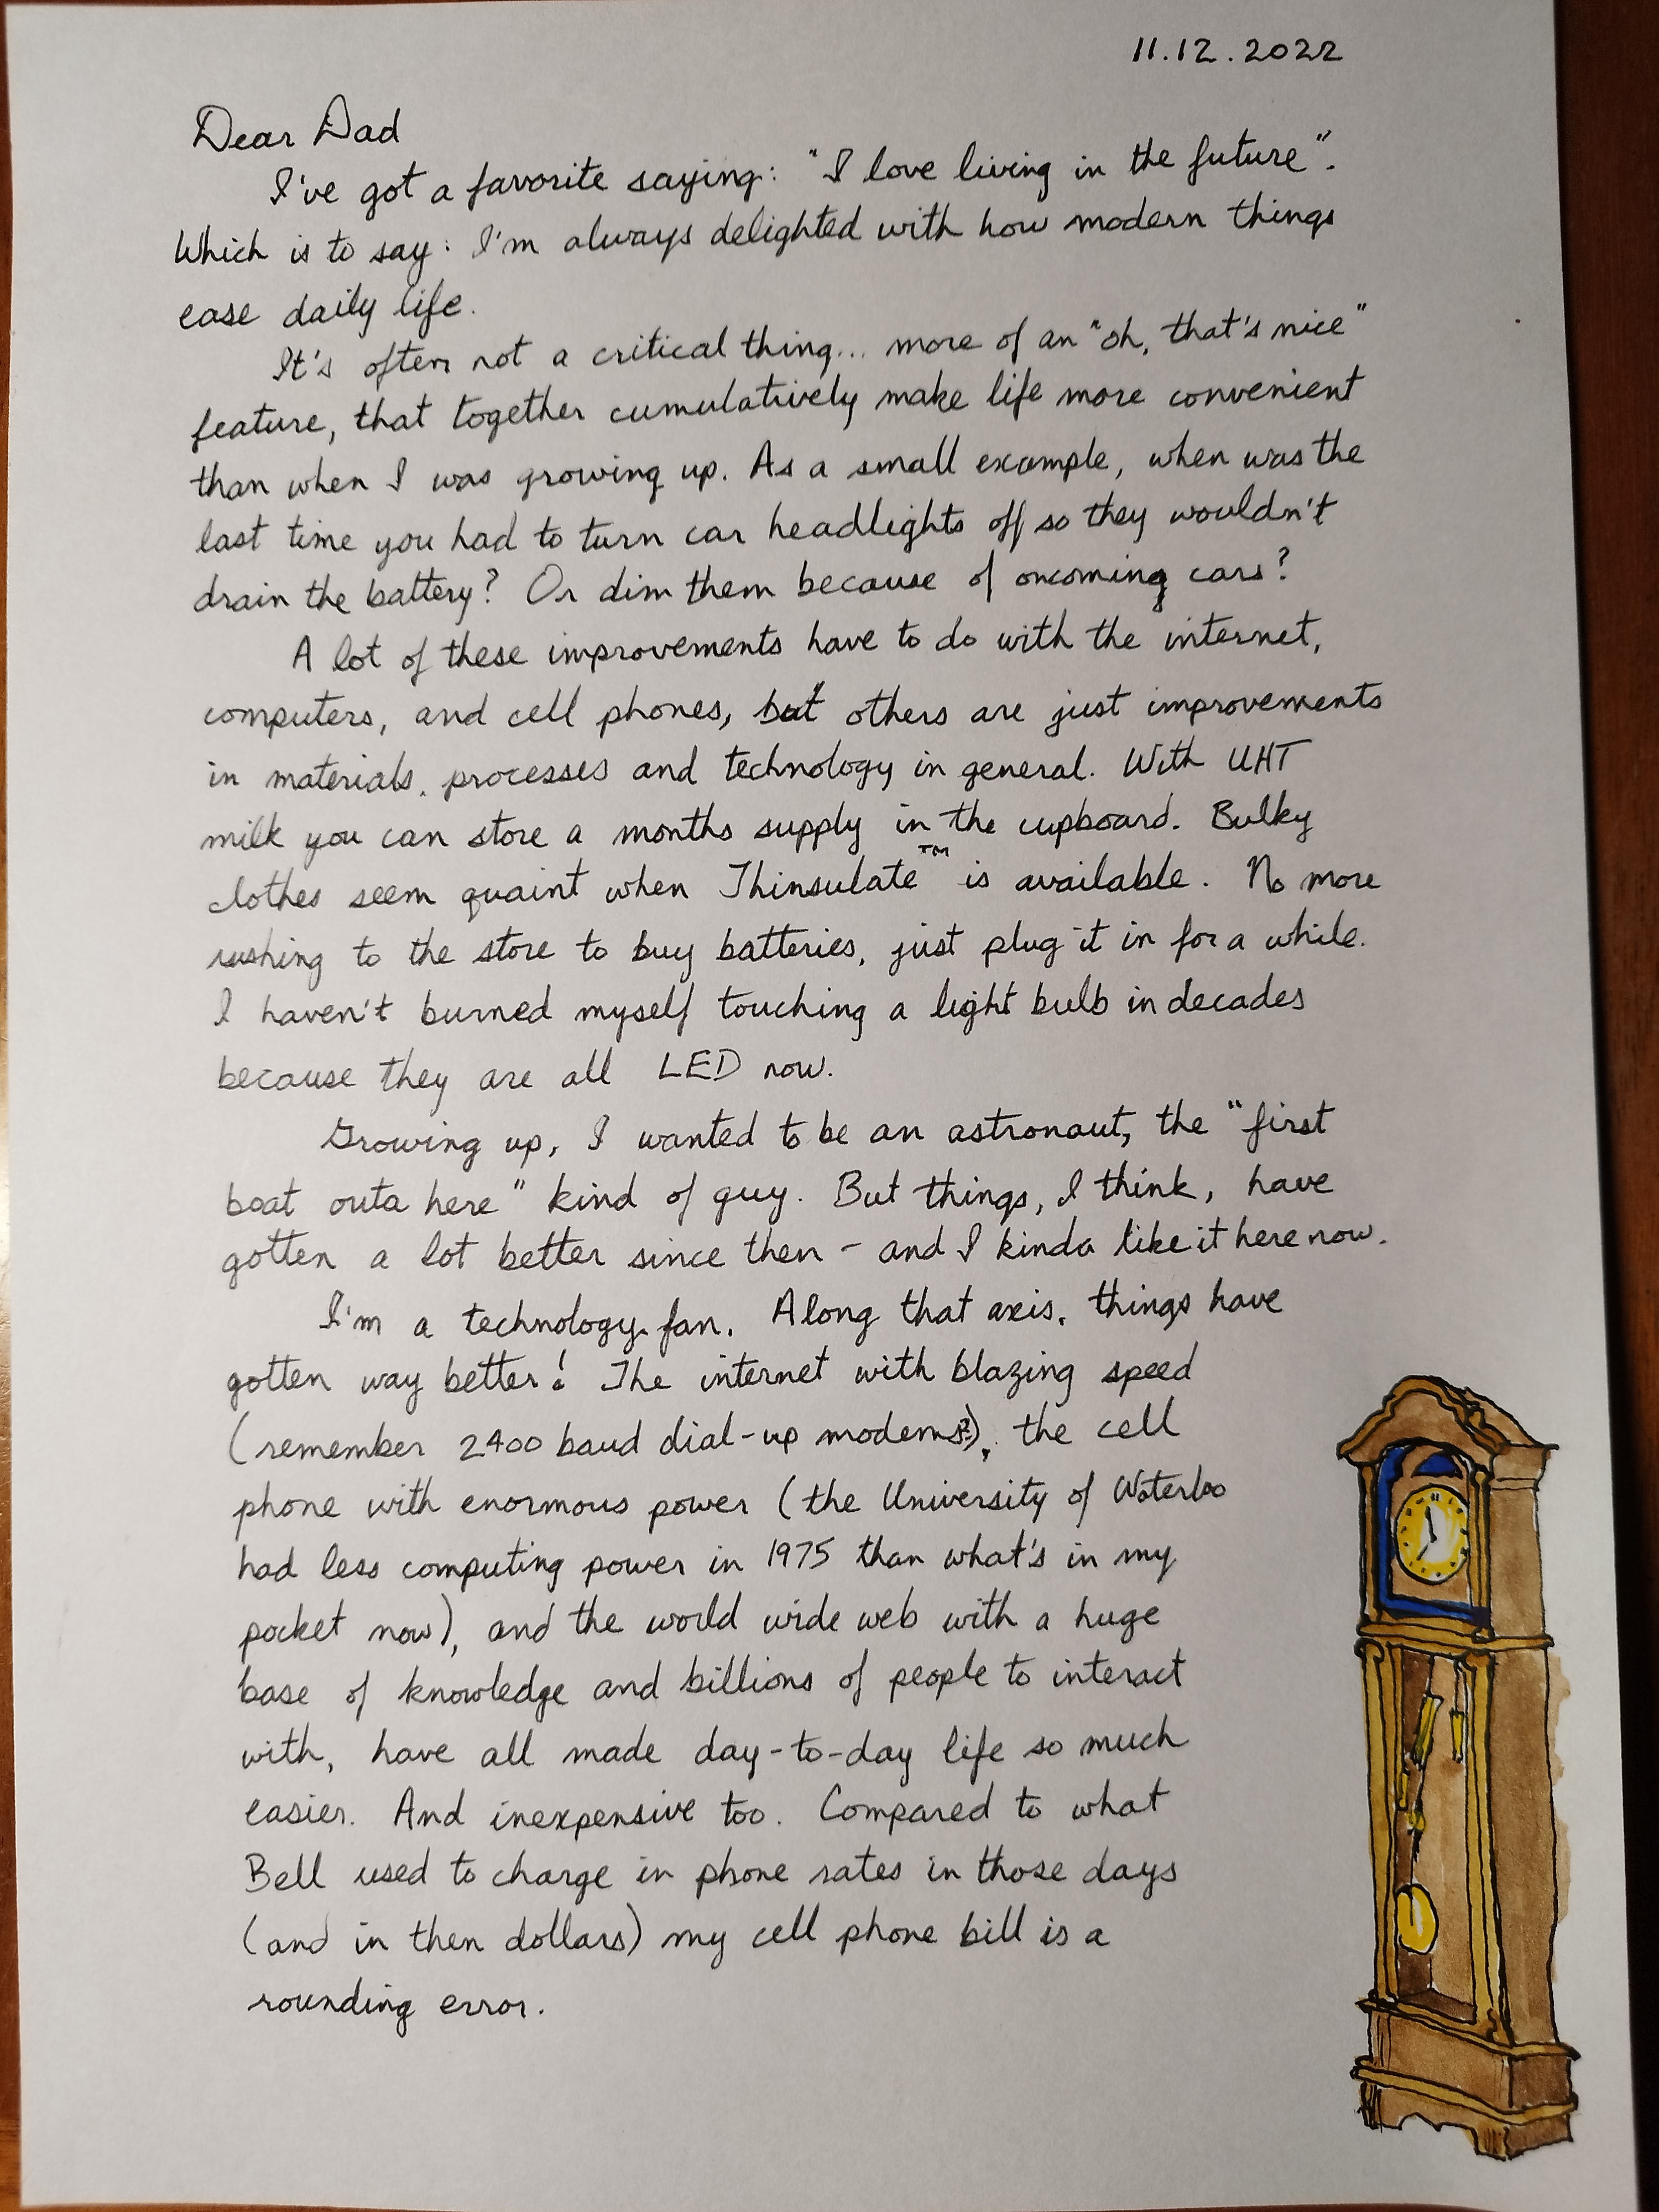 11.12.2022
Dear Dad
I've got a favorite saying: "I love living in the future".
Which is to say: I'm always delighted with how modern things
ease daily life.
It's often not a critical thing... more of an "oh, that's nice"
feature, that together cumulatively make life more convenient
than when I was growing up. As a small example, when was the
last time you had to turn car headlights off so they wouldn't
drain the battery? Or dim them because of oncoming cars?
A lot of these improvements have to do with the internet,
computers, and cell phones, but others are just improvements
in materials, processes and technology in general. With UHT
milk you can store a months supply in the cupboard. Bulky
clothes seem quaint when Thinsulate™ is available. No more
rushing to the store to buy batteries, just plug it in for a while.
I haven't burned myself touching a light bulb in decades
because they are all LED now.
Growing up, I wanted to be an astronaut, the "first
boat outa here" kind of guy. But things, I think, have
gotten a lot better since then - and I kinda like it here now.
I'm a technology fan. Along that axis, things have
gotten way better! The internet with blazing speed
(remember 2400 baud dial-up modems?), the cell
phone with enormous power (the University of Waterloo
had less computing power in 1975 than what's in my
pocket now), and the world wide web with a huge
base of knowledge and billions of people to interact
with, have all made day-to-day life so much
easier. And inexpensive too. Compared to what
Bell used to charge in phone rates in those days
(and in then dollars) my cell phone bill is a
rounding error.